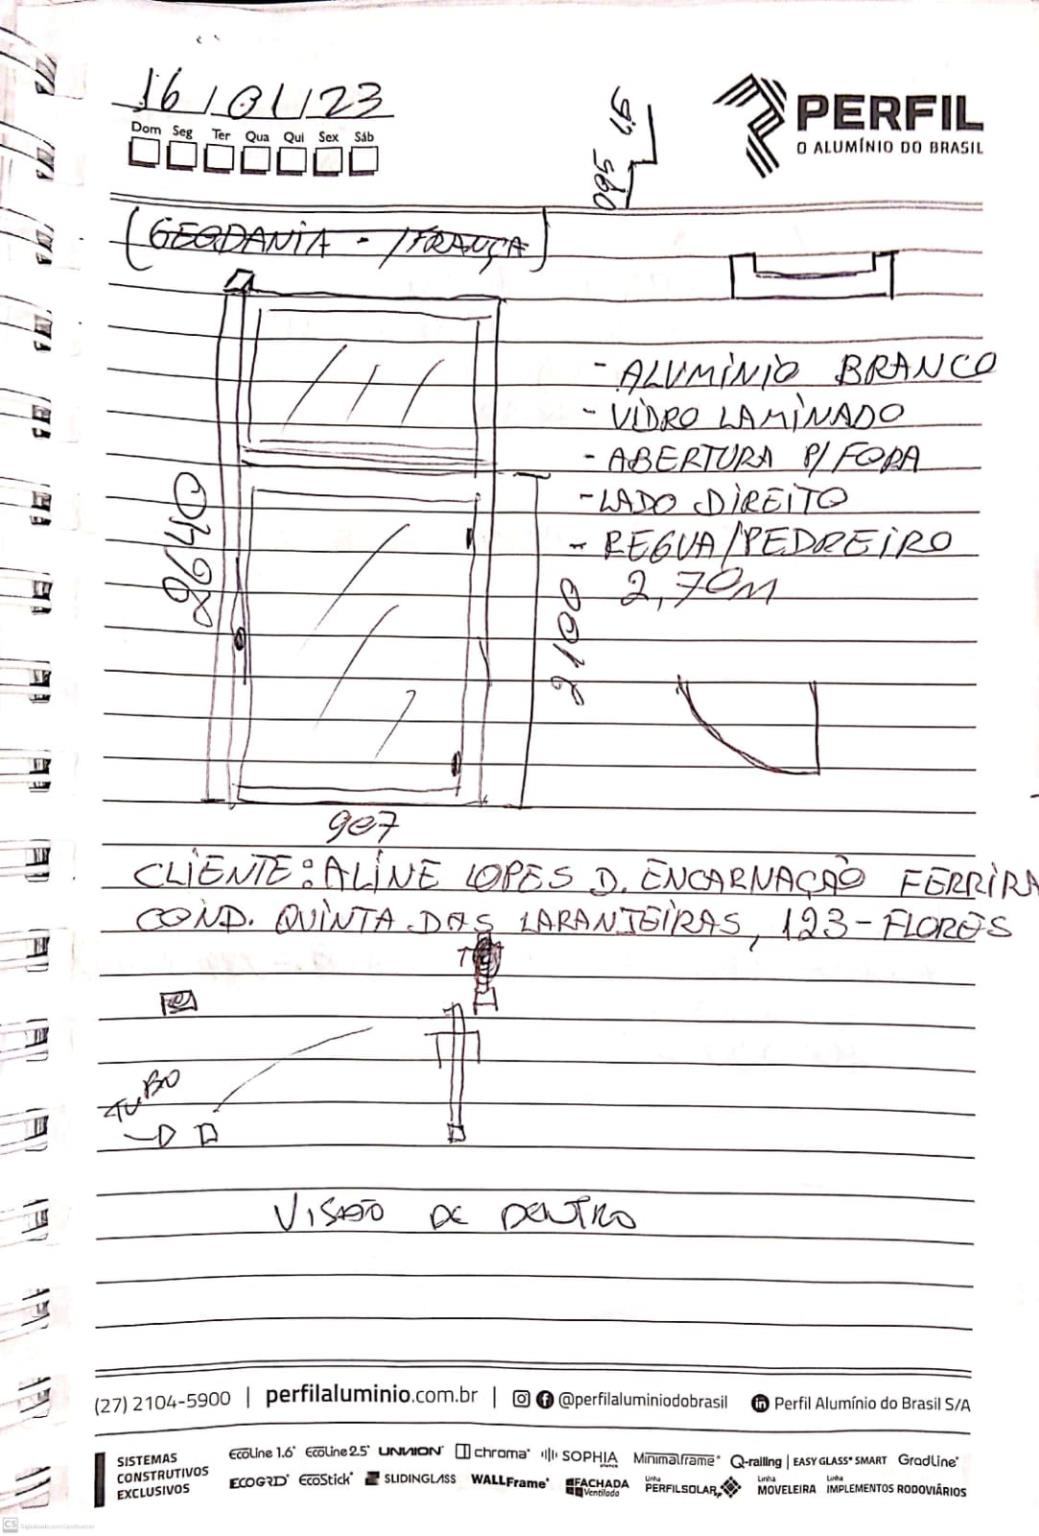 16/01/23
Dom Seg Ter Qua Qui Sex Sáb
560
PERFIL
O ALUMÍNIO DO BRASIL
(GEODANIA - /FRANÇA)
- ALUMINIO BRANCO
- VIDRO LAMINADO
- ABERTURA P/ FORA
- LADO DIREITO
- REGUA/PEDREIRO
2,70M
2640
2100
907
CLIENTE: ALINE LOPES D. ENCARNAÇÃO FERRIRA
COND. QUINTA DAS LARANJEIRAS, 123-FLORES
TUBO
VISÃO DE DENTRO
(27) 2104-5900 | perfilaluminio.com.br | @perfilaluminiodobrasil Perfil Alumínio do Brasil S/A
SISTEMAS CONSTRUTIVOS EXCLUSIVOS
ecoline 1.6 ecoline 2.5 UNNION chroma SOPHIA Minimalframe Q-railing | EASY GLASS SMART GradLine
ECOGRID EcoStick SLIDINGLASS WALLFrame FACHADA Ventilada Linha PERFILSOLAR Linha MOVELEIRA Linha IMPLEMENTOS RODOVIÁRIOS
CS